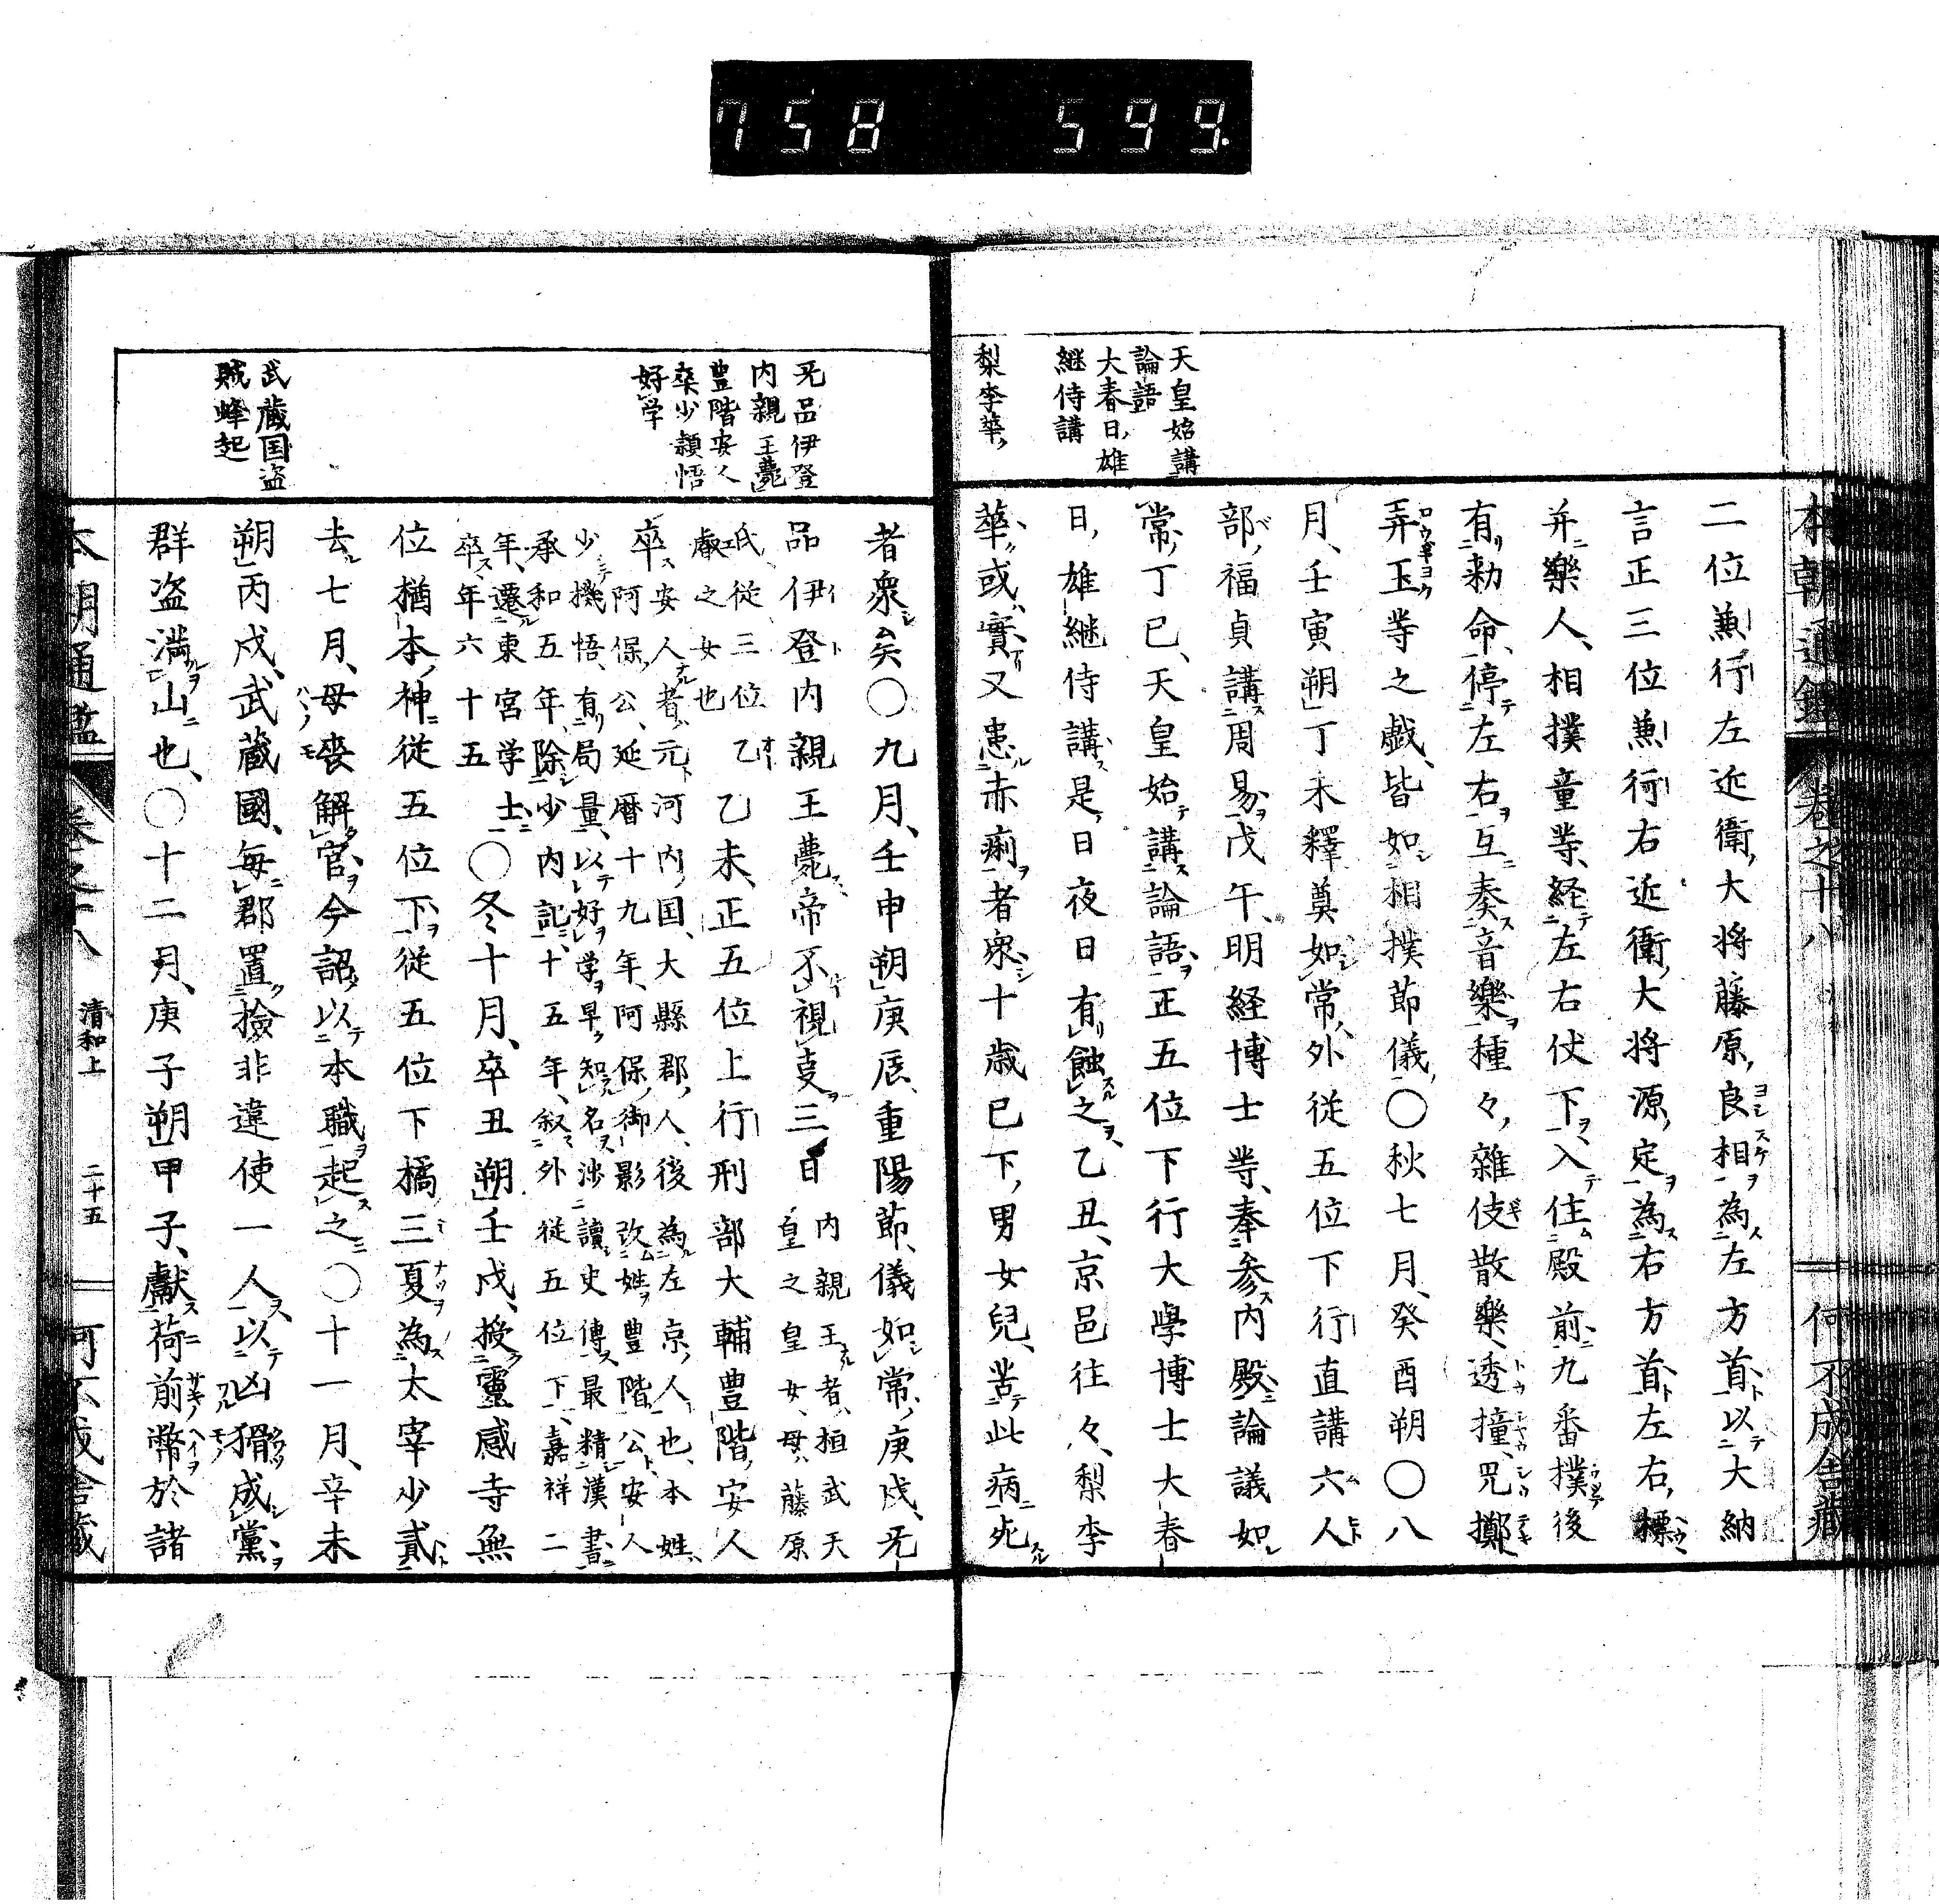 758 599.
本朝通鑑 卷之十八 何不成舎蔵
天皇始講
論語
大春日雄
継侍講
梨李華
二位兼行左近衛大将藤原良相為左方首以大納
言正三位兼行右近衛大将源定為右方首左右標
并樂人相撲童䒭経左右伏下入住殿前九番撲後
有勅命停左右互奏音樂種々雜伎散樂透撞咒擲
弄玉䒭之戯皆如相撲節儀〇秋七月癸酉朔〇八
月壬寅朔丁未釋奠如常外従五位下行直講六人
部福貞講周易戊午明経博士䒭奉参内殿論議如
常丁巳天皇始講論語正五位下行大學博士大春
日雄継侍講是日夜日有蝕之乙丑京邑往々梨李
華或實又患赤痢者衆十歳已下男女兒苦此病死
无品伊登
内親王薨
豊階安人
卒少頴悟
好学
武蔵国盗
賊蜂起
者衆矣〇九月壬申朔庚辰重陽節儀如常庚戌无
品伊登内親王薨帝不視叓三日
内親王者桓武天
皇之皇女母藤原
氏従三位乙
叡之女也
乙未正五位上行刑部大輔豊階安人
卒
安人者元河内国大縣郡人後為左京人也本姓
阿保公延暦十九年阿保御影改姓豊階公安人
少機悟有局量以好学早知名渉讀史傳最精漢書
承和五年除少内記十五年叙外従五位下嘉祥二
年遷東宮学士
卒年六十五
〇冬十月卒丑朔壬戌授靈感寺無
位楢本神従五位下従五位下橘三夏為太宰少貳
去七月母喪解官今詔以本職起之〇十一月辛未
朔丙戌武蔵國毎郡置撿非違使一人以凶猾成黨
群盗満山也〇十二月庚子朔甲子獻荷前幣於諸
本朝通鑑 卷之十八 清和上 二十五 何不成舎蔵